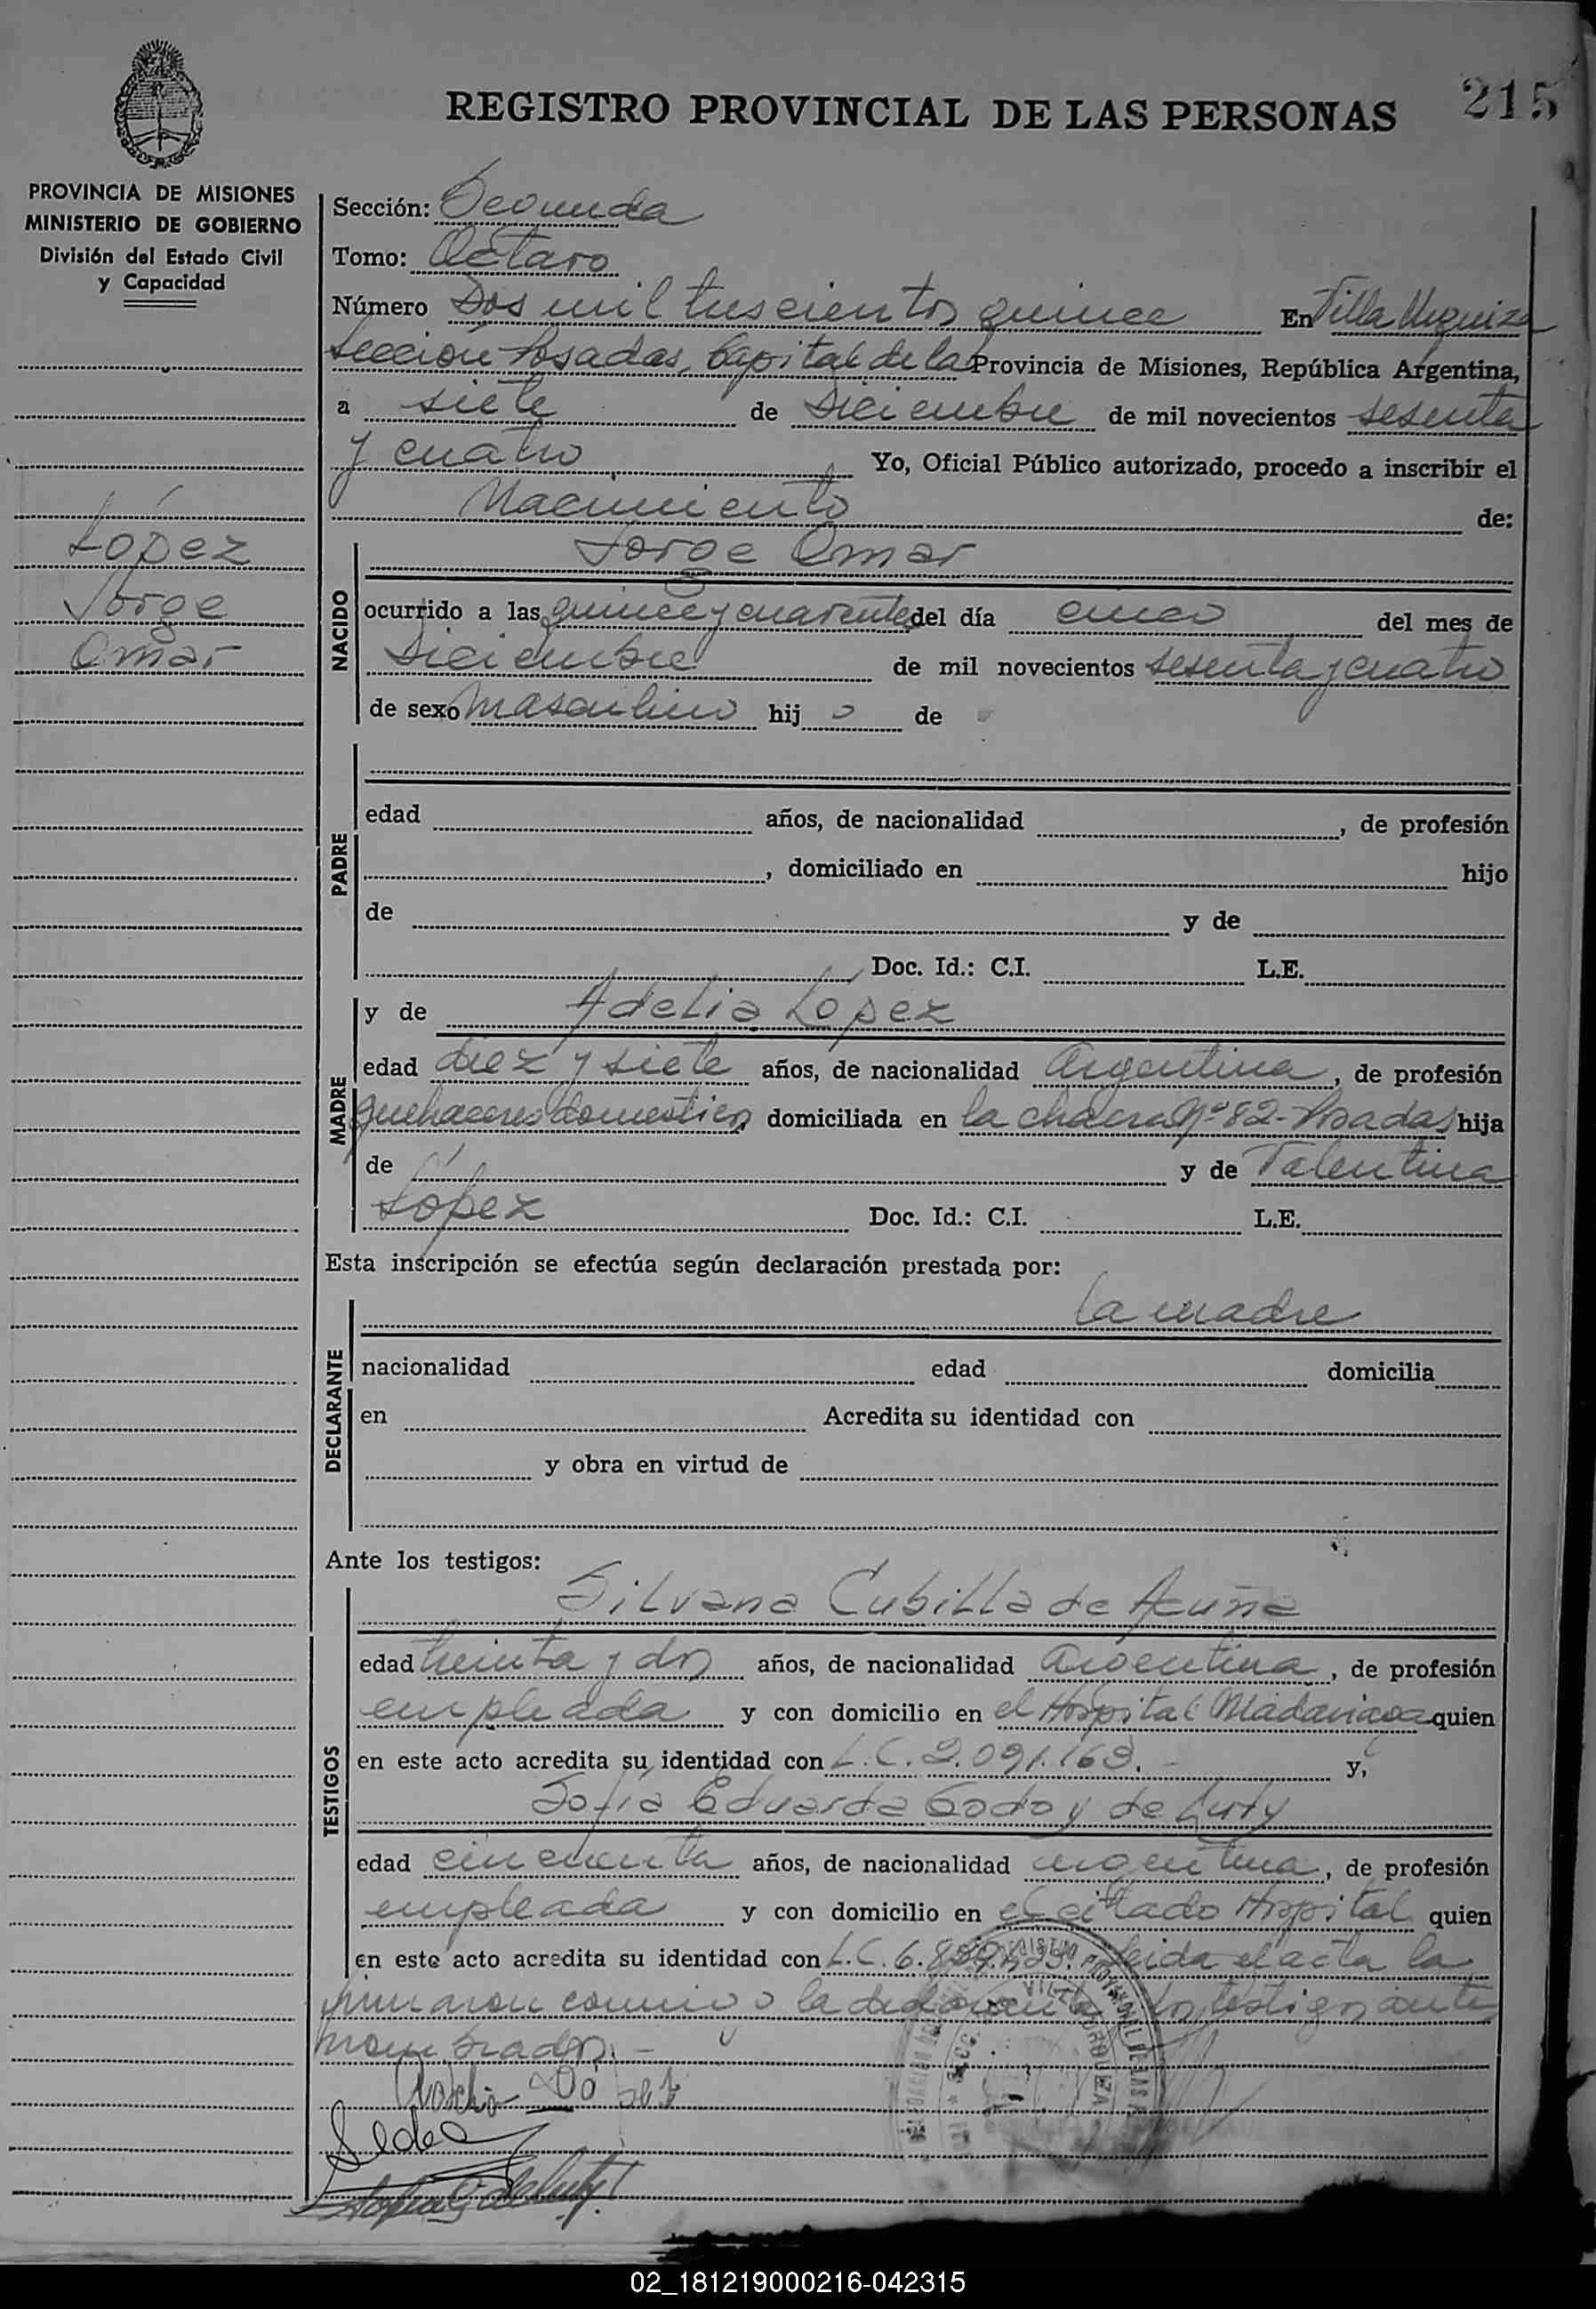 REGISTRO PROVINCIAL DE LAS PERSONAS 215
PROVINCIA DE MISIONES
MINISTERIO DE GOBIERNO
División del Estado Civil
y Capacidad
López
Jorge
Omar
Sección: Segunda
Tomo: Octavo
Número Dos mil trescientos quince En Villa Urquiza
Sección Posadas, Capital de la Provincia de Misiones, República Argentina,
a siete de Diciembre de mil novecientos sesenta
y cuatro Yo, Oficial Público autorizado, procedo a inscribir el
Nacimiento de:
NACIDO
Jorge Omar
ocurrido a las quince y cuarenta del día cinco del mes de
Diciembre de mil novecientos sesenta y cuatro
de sexo masculino hij o de
PADRE
edad años, de nacionalidad , de profesión
, domiciliado en hijo
de y de
Doc. Id.: C.I. L.E.
MADRE
y de Adelia López
edad diez y siete años, de nacionalidad Argentina, de profesión
quehaceres domesticos domiciliada en la chacra Nº 82 - Posadas hija
de y de Valentina
López Doc. Id.: C.I. L.E.
Esta inscripción se efectúa según declaración prestada por:
DECLARANTE
la madre
nacionalidad edad domicilia
en Acredita su identidad con
y obra en virtud de
Ante los testigos:
TESTIGOS
Silvana Cubilla de Acuña
edad treinta y dos años, de nacionalidad Argentina, de profesión
empleada y con domicilio en el Hospital Madariaga quien
en este acto acredita su identidad con L.C. 2.091.163. - y,
Sofía Eduarda Godoy de Luty
edad cincuenta años, de nacionalidad argentina, de profesión
empleada y con domicilio en el citado Hospital quien
en este acto acredita su identidad con L.C. 6. Leida el acta la
firmaron conmigo la declarante los testigos ante
nombrados. -
02_181219000216-042315